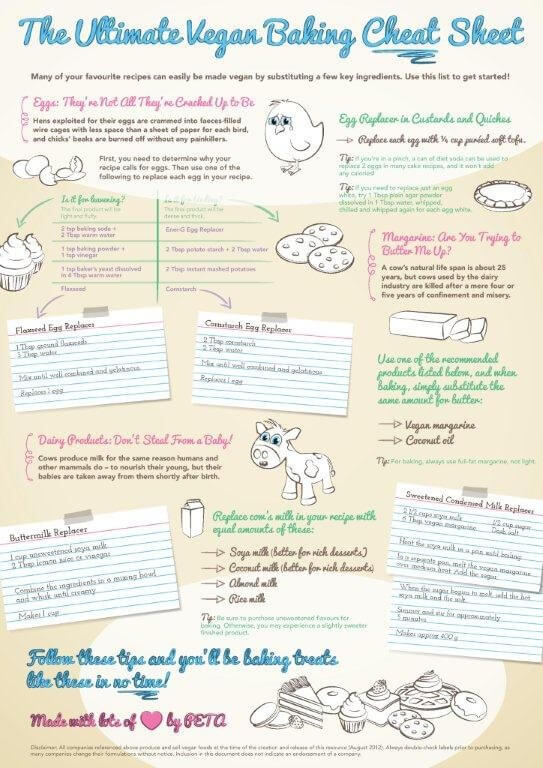 The Ultimate Vegan Baking Cheat Sheet
Many of your favourite recipes can easily be made vegan by substituting a few key ingredients. Use this list to get started!
Eggs: They're Not All They're Cracked Up to Be
Hens exploited for their eggs are crammed into faeces-filled
wire cages with less space than a sheet of paper for each bird,
and chicks' beaks are burned off without any painkillers.
First, you need to determine why your
recipe calls for eggs. Then use one of the
following to replace each egg in your recipe.
Is it for leavening?
The final product will be
light and fluffy.
2 tsp baking soda +
2 Tbsp warm water
1 tsp baking powder +
1 tsp vinegar
1 tsp baker's yeast dissolved
in 4 Tbsp warm water
Flaxseed
Is it for binding?
The final product will be
dense and thick.
Ener-G Egg Replacer
2 Tbsp potato starch + 2 Tbsp water
2 Tbsp instant mashed potatoes
Cornstarch
Egg Replacer in Custards and Quiches
Replace each egg with ¼ cup puréed soft tofu.
Tip: If you're in a pinch, a can of diet soda can be used to
replace 2 eggs in many cake recipes, and it won't add
any calories!
Tip: If you need to replace just an egg
white, try 1 Tbsp plain agar powder
dissolved in 1 Tbsp water, whipped,
chilled and whipped again for each egg white.
Margarine: Are You Trying to
Butter Me Up?
A cow's natural life span is about 25
years, but cows used by the dairy
industry are killed after a mere four or
five years of confinement and misery.
Use one of the recommended
products listed below, and when
baking, simply substitute the
same amount for butter:
Vegan margarine
Coconut oil
Tip: For baking, always use full-fat margarine, not light.
Flaxseed Egg Replacer
1 Tbsp ground flaxseeds
3 Tbsp water
Mix until well combined and gelatinous
Replaces 1 egg
Cornstarch Egg Replacer
2 Tbsp cornstarch
2 Tbsp water
Mix until well combined and gelatinous
Replaces 1 egg
Dairy Products: Don't Steal From a Baby!
Cows produce milk for the same reason humans and
other mammals do – to nourish their young, but their
babies are taken away from them shortly after birth.
Buttermilk Replacer
1 cup unsweetened soya milk
2 Tbsp lemon juice or vinegar
Combine the ingredients in a mixing bowl
and whisk until creamy.
Makes 1 cup
Replace cow's milk in your recipe with
equal amounts of these:
Soya milk (better for rich desserts)
Coconut milk (better for rich desserts)
Almond milk
Rice milk
Tip: Be sure to purchase unsweetened flavours for
baking. Otherwise, you may experience a slightly sweeter
finished product.
Sweetened Condensed Milk Replacer
2 1/2 cups soya milk
6 Tbsp vegan margarine
1/2 cup sugar
Dash salt
Heat the soya milk in a pan until boiling
In a separate pan, melt the vegan margarine
over medium heat. Add the sugar.
When the sugar begins to melt, add the hot
soya milk and the salt.
Simmer and stir for approximately
5 minutes
Makes approx 400 g
Follow these tips and you'll be baking treats
like these in no time!
Made with lots of by PETA
Disclaimer: All companies referenced above produce and sell vegan foods at the time of the creation and release of this resource (August 2012). Always double-check labels prior to purchasing, as
many companies change their formulations without notice. Inclusion in this document does not indicate an endorsement of a company.